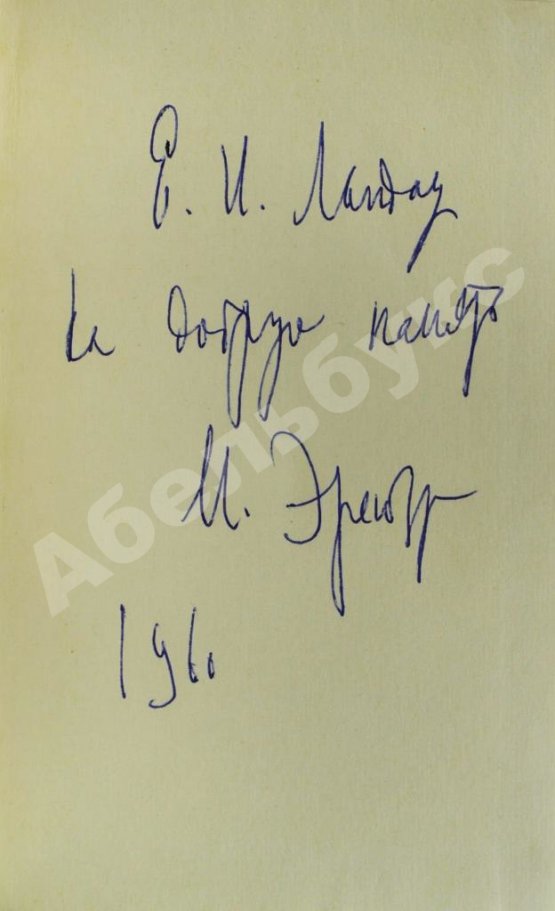 Е. И. Ландау
на добрую память
И. Эренбург
1960
Абельбукс